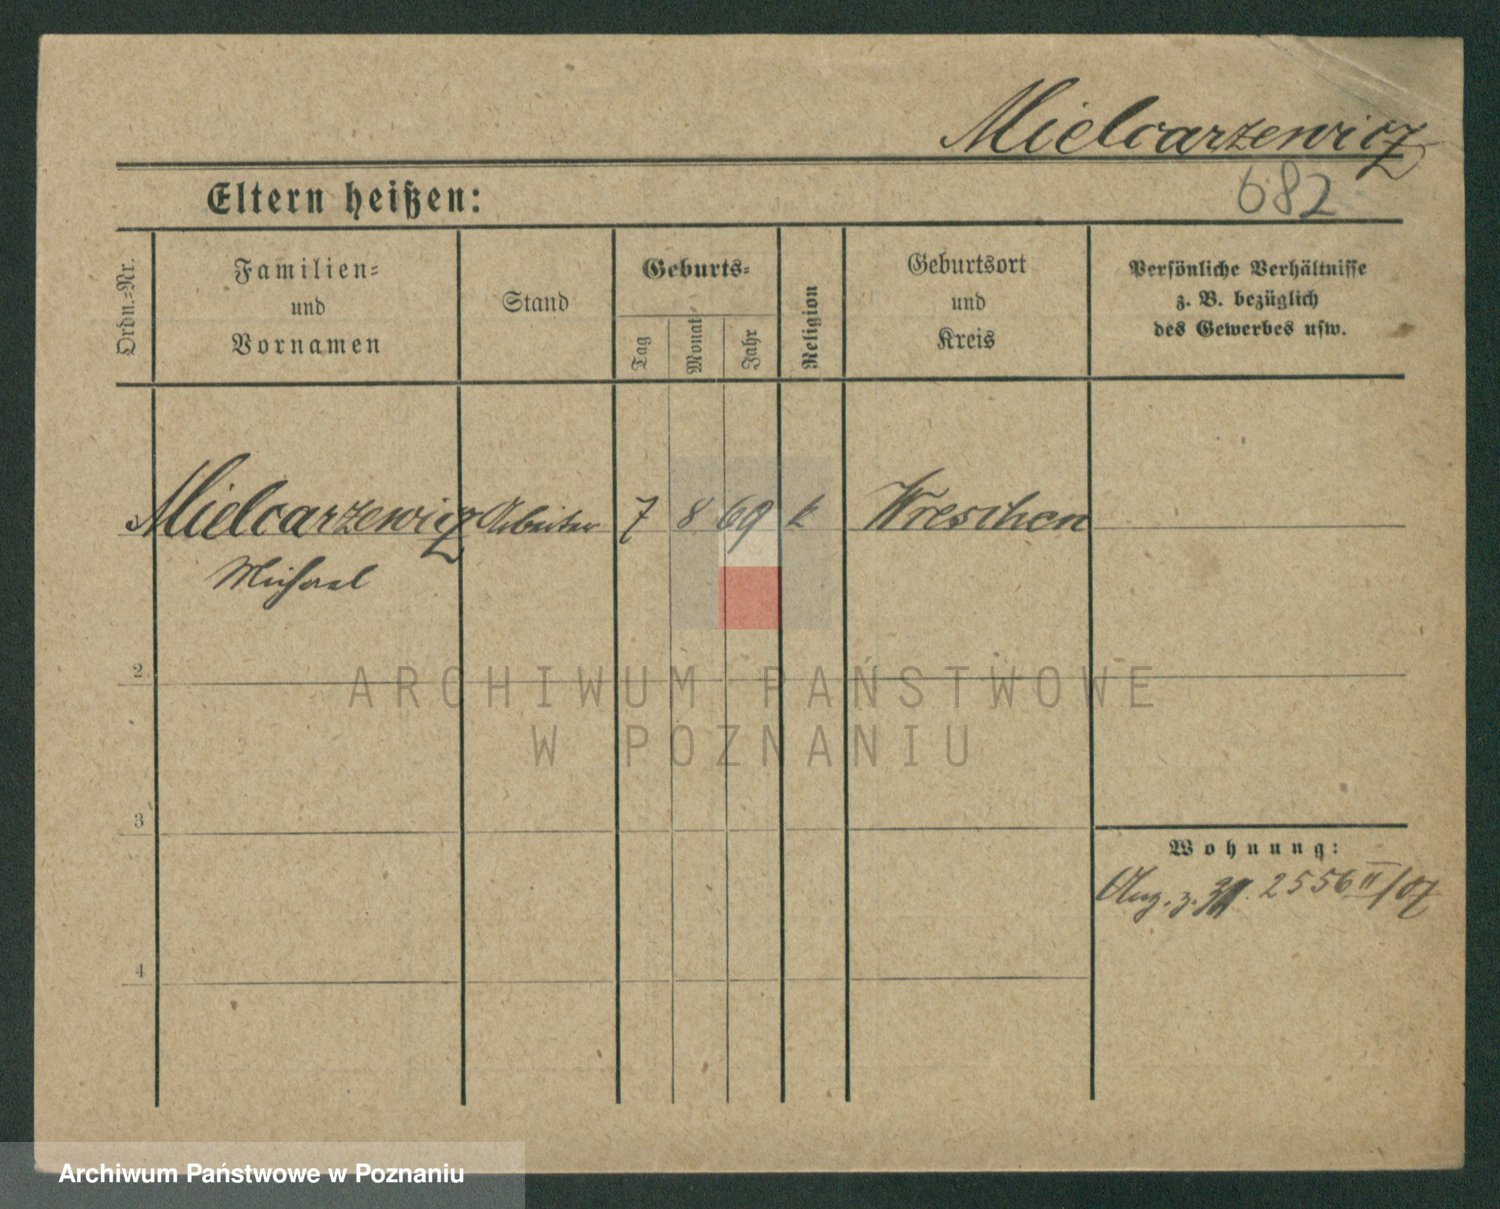 Mielcarzewicz
682
Eltern heißen:
Ordn.=Nr.
Familien=
und
Vornamen
Stand
Geburts=
Tag
Monat
Jahr
Religion
Geburtsort
und
Kreis
Persönliche Verhältnisse
z. B. bezüglich
des Gewerbes usw.
Mielcarzewicz Arbeiter 7 8 69 k Wreschen
Michael
2
ARCHIWUM PAŃSTWOWE
W POZNANIU
3
Wohnung:
z. 2556 II/07
4
Archiwum Państwowe w Poznaniu